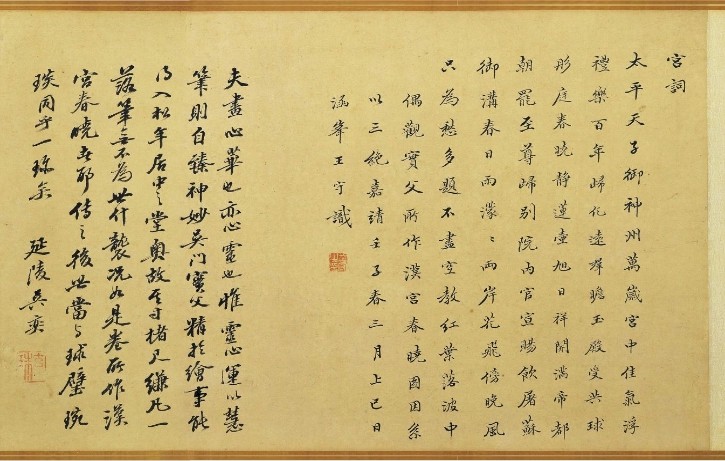 宮詞
太平天子御神州萬歲宮中佳氣浮
禮樂百年歸化遠群瞻玉殿受共球
彤庭春曉靜蓬壺旭日祥開滿帝都
朝罷至尊歸別院內官宣賜飲屠蘇
御溝春日雨濛〻兩岸花飛傍晚風
只為愁多題不盡空教紅葉落波中
偶觀實父所作漢宮春曉圖因系
以三絕嘉靖壬子春三月上巳日
涵峯王守識
夫畫心華也亦心靈也惟靈心運以慧
筆則自臻神妙吳門實父精於繪事能
得入松年居中之堂奧故至寸楮尺縑凡一
落筆無不為世什襲況如是卷所作漢
宮春曉者耶傳之後世當與球璧琬
琰同乎一珍矣 延陵吳奕